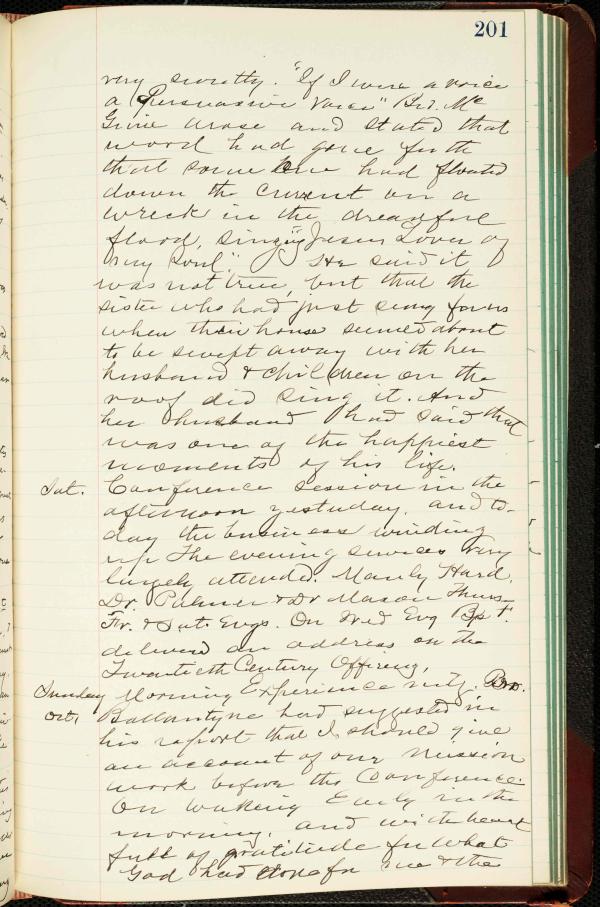 201
very sweetly. "If I were a voice
a Persuasive Voice" Br. Mc
Givie arose and stated that
word had gone forth
that some one had floated
down the current on a
wreck in the dreadful
flood, singing "Jesus Lover of
my soul." He said it
was not true, but that the
sister who had just sung for us
when their house seemed about
to be swept away with her
husband & children on the
roof did sing it. And
her husband had said that
was one of the happiest
moments of his life.
Sat. Conference session in the
afternoon yesterday, and to-
day the business winding
up The evening services very
largely attended. Manly Hard,
Dr. Palmer & Dr Mason Thurs-
Fr. & Sat. Evgs. On Wed Evg Bp F.
delivered an address on the
Twentieth Century Offering,
Sunday Morning Experience mtg. Bro.
Oct, Ballantyne had suggested in
his report that I should give
an account of our Mission
work before the Conference.
On waking Early in the
morning, and with heart
full of gratitude for what
God had done for me & the